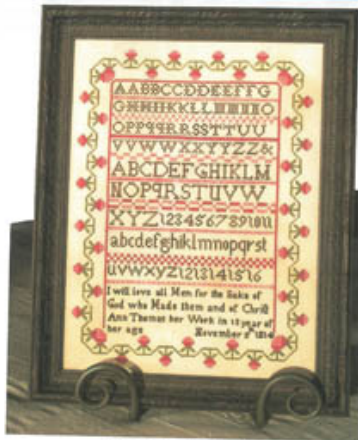 AABBCCDDEEFFG
GHHIIKKLLMMNNO
OPPqqRRSSTTUU
VVWWXXYYZZ&
ABCDEFGHIKLM
NOPqRSTUVW
XYZ1234567891011
abcdefghiklmnopqrst
uvwxyz1213141516
I will love all Men for the Sake of
God who Made them and of Christ
Ann Thomas her Work in 12 year of
her age November 9 1814